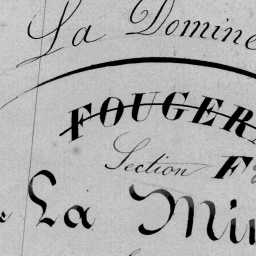 La Domine
FOUGER
Section F
La Min